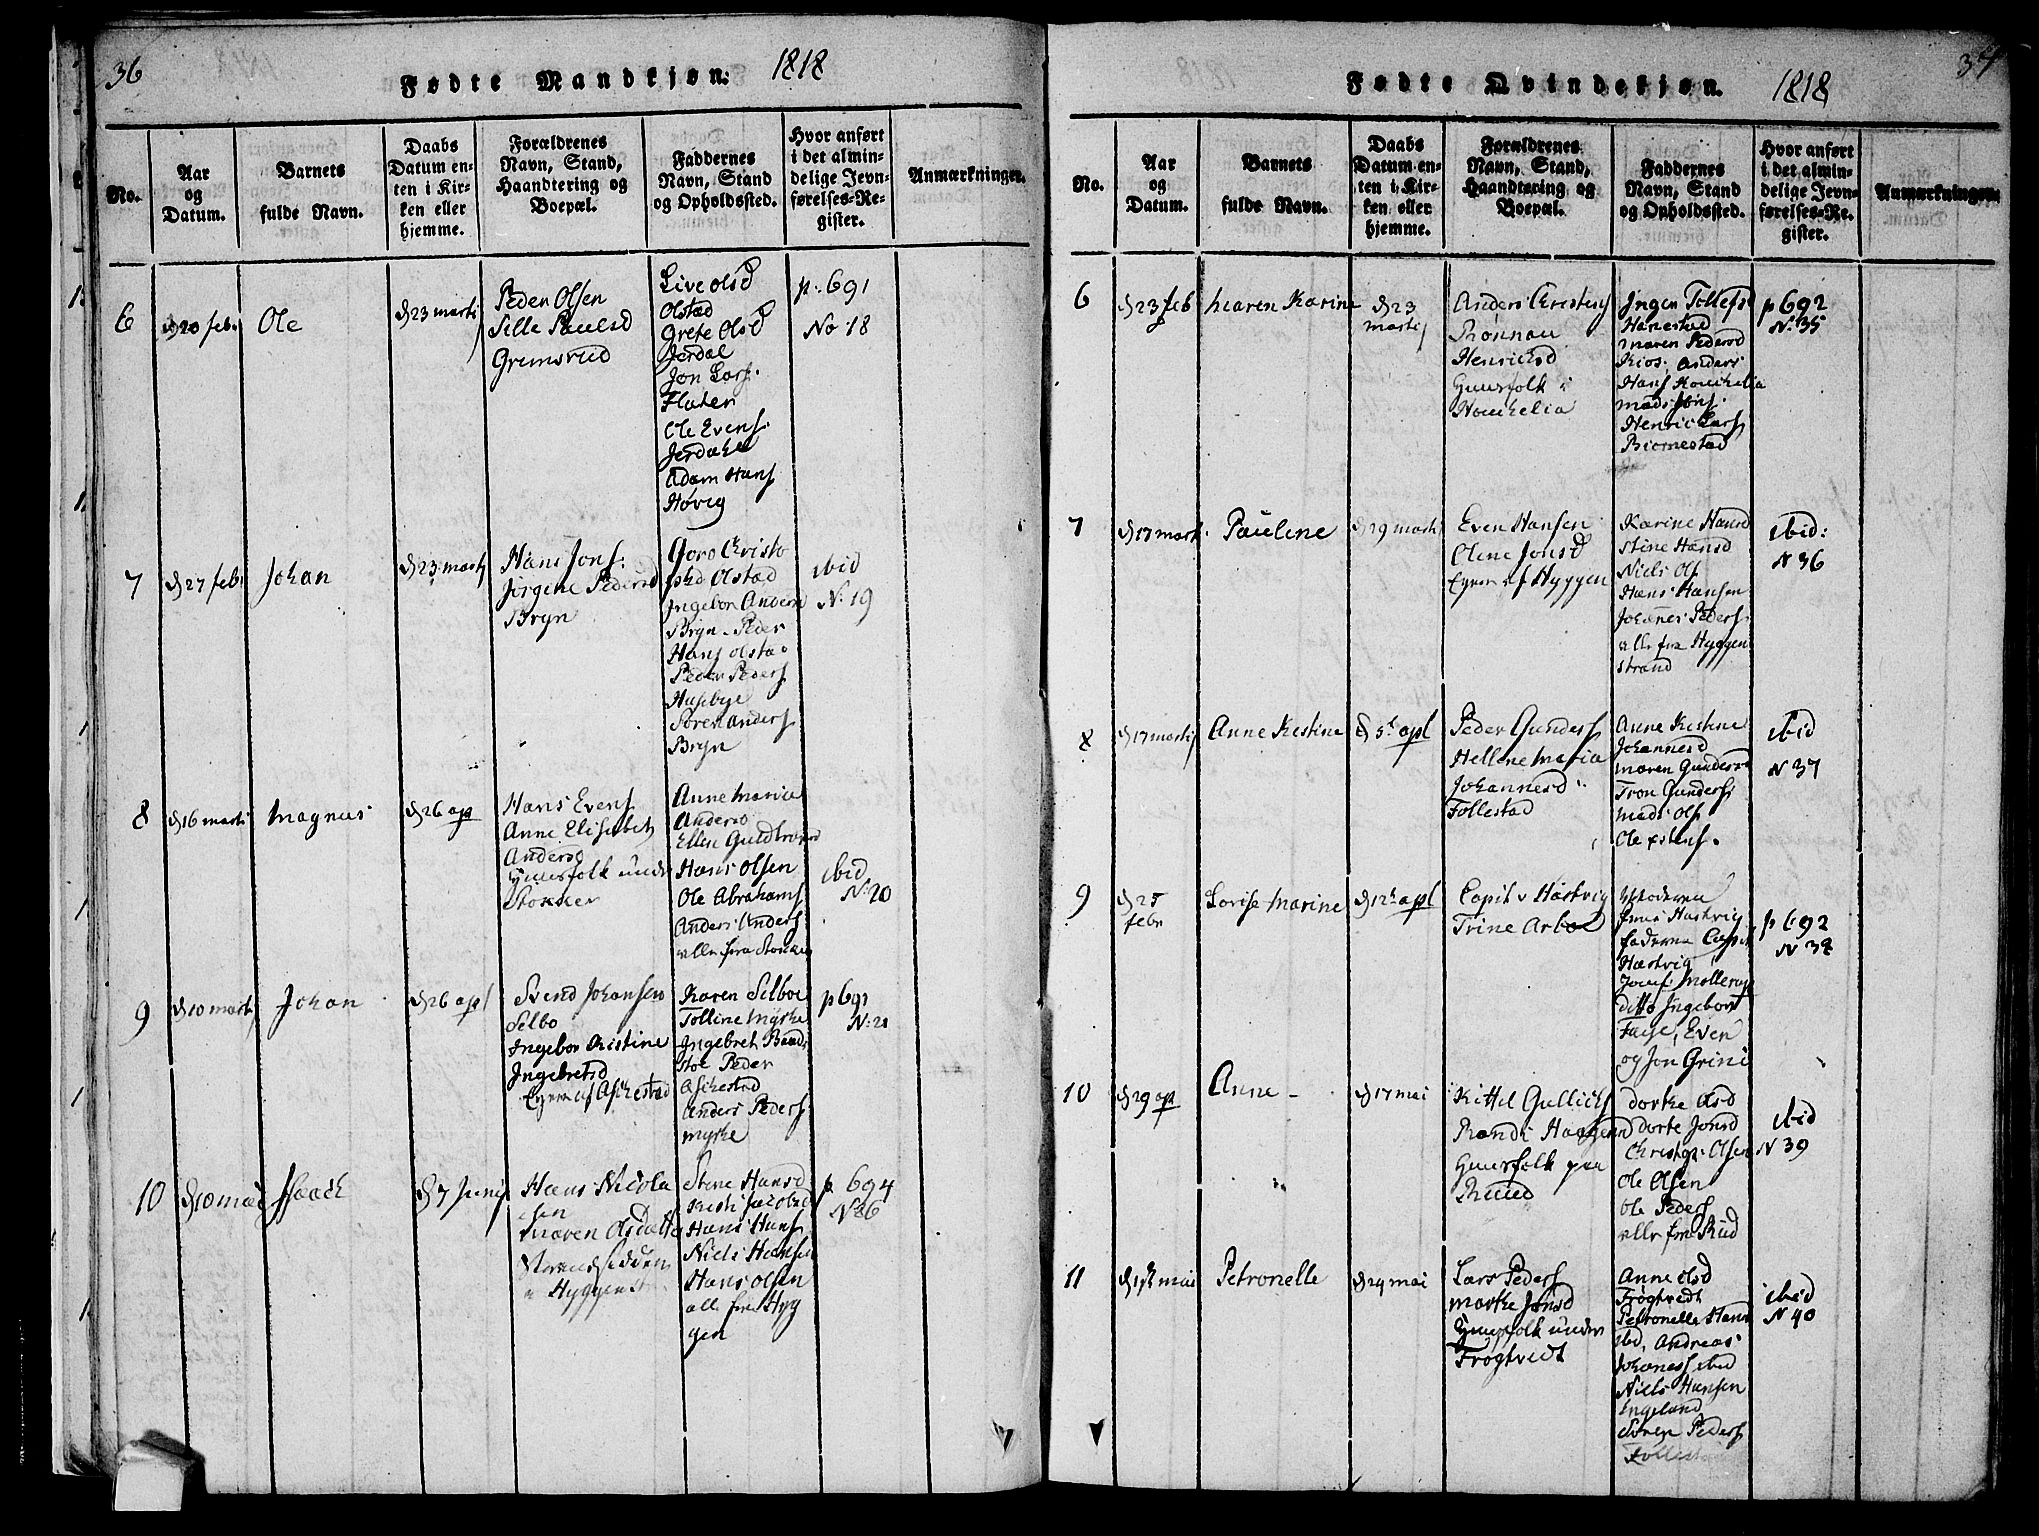 36
Fødte Mandkjøn: 1818
No.
Aar
og
Datum.
Barnets
fulde Navn.
Daabs
Datum en-
ten i Kir-
ken eller
hjemme.
Forældrenes
Navn, Stand,
Haandtering og
Boepæl.
Faddernes
Navn, Stand
og Opholdssted.
Hvor anført
i det almin-
delige Jevn-
førelses-Re-
gister.
Anmærkninger.
6
d 20 feb.
Ole
d 23 martij
Peder Olsen
Sille Paulsd
Gremsrud
Live olsd
Olstad
Grete Olsd
Jerdal
Jon Lars.
Flaten
Ole Evens.
Jerdahl
Adam Hans
Høvig
p. 691
No 18
7
d 27 febr
Johan
d 23 martij
Hans Jons:
Jørgene Pedersd
Bryn
Goro Christo
phd Olstad
Ingebor Anders
Bryn. Peder
Hans olstad
Peder Peders
Husebye
Søren Anders
Bryn
ibid
N. 19
8
d 16 marti
Magnus
d 26 apr
Hans Evens
Anne Elisabeth
Andersd
Huusfolk under
Stokker
Anne Maria
Andersd
Ellen Guldbrand
Hans Olsen
Ole Abrahams
Anders Anders
alle fra Stokker
ibid
N. 20
9
d 10 martij
Johan
d 26 apl
Svend Johansen
Selbo
Ingebor Kistine
Ingebretsd
Eyere af Askestad
Karen Selboe
Tolline Myrke
Ingebret Baads
stoe Peder
Askestad
Anders Peders
myrke
p 691
N. 21
10
d 10 mai
Isaack
d 7 Junij
Hans Nicola
isen
Maren Olsdatter
Strandsidden
i Hyggen
Stine Hansd
Kisti Jacobsd
Hans Hans
Niels Hansen
Hans Olsen
alle fra Hyg
gen
p. 694
N 26
37
Fødte Qvindekjøn. 1818
No.
Aar
og
Datum.
Barnets
fulde Navn.
Daabs
Datum en-
ten i Kir-
ken eller
hjemme.
Forældrenes
Navn, Stand,
Haandtering og
Boepæl.
Faddernes
Navn, Stand
og Opholdssted.
Hvor anført
i det almin-
delige Jevn-
førelses-Re-
gister.
Anmærkninger.
6
d 23 feb
Maren Karine
d 23
martij
Anders Christens
Ronnau
Henricksd
Huusfolk i
Houkelia
Ingen Tollefs
Hanestad
Maren Pedersd
Kios. Anders
Hans Houkelia
Mads Jøns.
Henric Lars
Biornestad
p 692
N. 35
7
d 17 mart.
Paulene
d 29 marti
Even Hansen
Olene Jonsd
Eyere af Hyggen
Karine Hansd
Stine Hansd
Niels Ols
Hans Hansen
Johanes Peders.
alle fra Hyggen
strand
ibid:
N 36
8
d 17 martij
Anne Kestine
d 5t apl
Peder Gunders
Hellene Maria
Johannesd
Follestad
Anne Kestine
Johannesd
Maren Gundersd
Tron Gunders
Mads Ols
Ole Estens.
ibid
N 37
9
d 25
febr
Lovise Marine
d 12t apl
Capit v Hastvig
Trine Arboe
Moderen
frue Hastvig
faderen Capit
Hastvig
Josef Mollerup
ditto Ingeborg
Faye, Even
og Jon Grini
p 692
N 38
10
d 29 ap
Anne
d 17 mai
Kittel Gullicks
Randi Haagensd
Huusfolk paa
Ruud
dorthe Olsd
dorte Jonsd
Christop. Olsen
Ole Olsen
Ole Peders
alle fra Rud
ibid
N 39
11
mai
Petronelle
d 24 mai
Lars Peders
Marthe Jonsd
Huusfolk under
Frogtvedt
Anne Olsd
Frogtvedt
Petronelle Hans
ibd, Andreas
Johaness ibid
Niels Hansen
Engeland
Søren Peders
Follestad
ibid
N 40